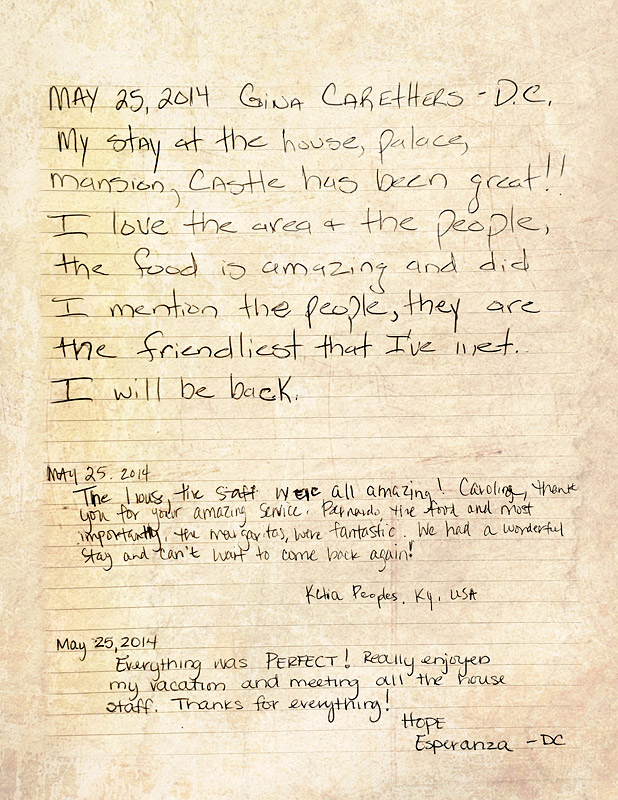 MAY 25, 2014 GINA CARETHERS - D.C.
My stay at the house, palace,
mansion, CAStle has been great!!
I love the area & the people,
the food is amazing and did
I mention the people, they are
the friendliest that I've met.
I will be back.
MAY 25. 2014
The house, the staff were all amazing! Caroline, thank
you for your amazing service. Bernardo the food and most
importantly, the margaritas, were fantastic. We had a wonderful
stay and can't wait to come back again!
Peoples. Ky, USA
May 25, 2014
Everything was PERFECT! Really enjoyed
my vacation and meeting all the house
staff. Thanks for everything!
HOPE
Esperanza - DC